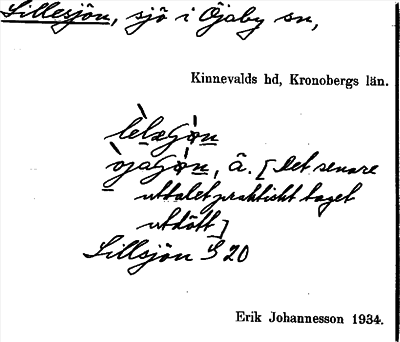 Lillesjön, sjö i Öjaby sn,
Kinnevalds hd, Kronobergs län.
, â. [Det senare
uttalet praktiskt taget
utdött]
Lillsjön S 20
Erik Johannesson 1934.